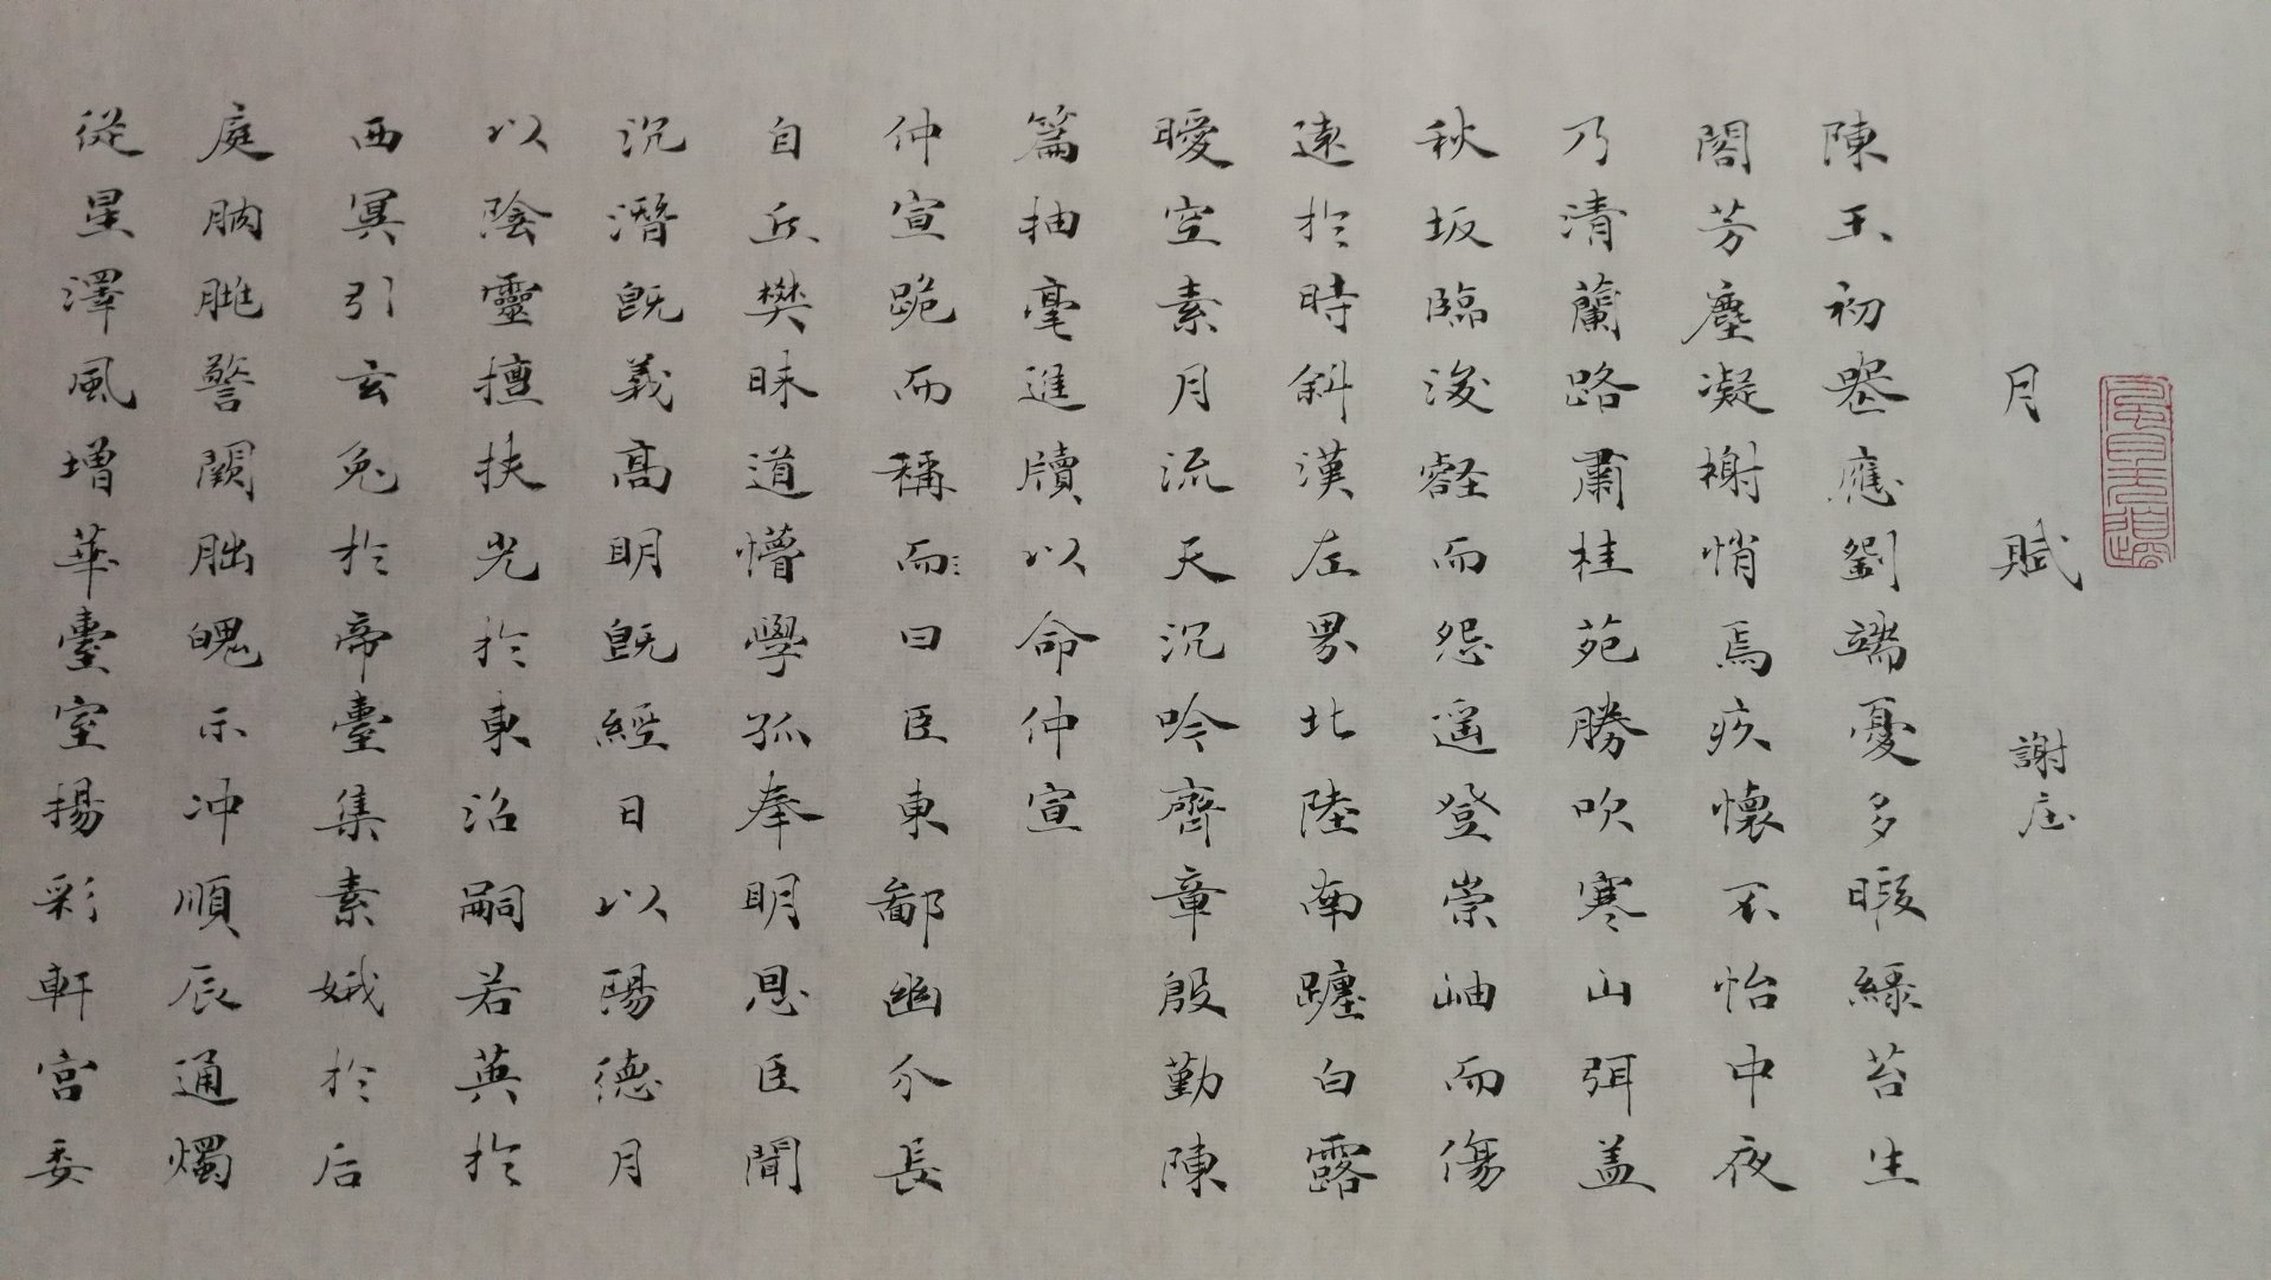 月賦 謝庄
陳王初喪應劉端憂多暇綠苔生
閣芳塵凝榭悄焉疚懷不怡中夜
乃清蘭路肅桂苑勝吹寒山弭盖
秋坂臨浚壑而怨遥登崇岫而傷
遠於時斜漢左界北陸南躔白露
曖空素月流天沉吟齊章殷勤陳
篇抽毫進牘以命仲宣
仲宣跪而稱而曰臣東鄙幽介長
自丘樊昧道懵學孤奉明恩臣聞
沉潛既義高明既經日以陽德月
以陰靈擅扶光於東沼嗣若英於
西冥引玄兔於帝臺集素娥於后
庭朒脁警闕朏魄示冲順辰通燭
從星澤風增華臺室揚彩軒宮委